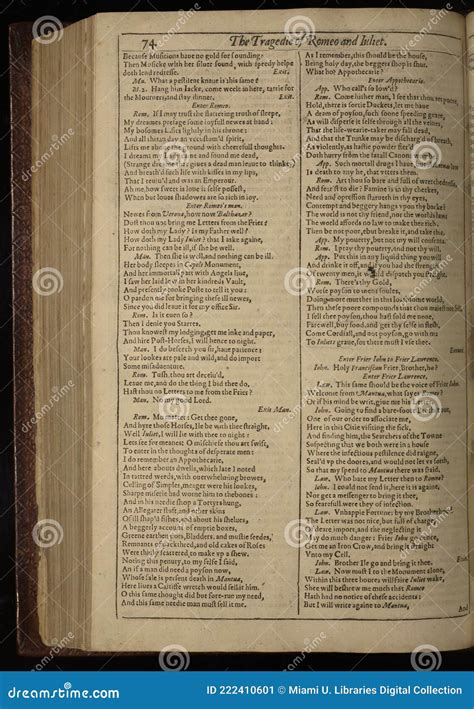 74
The Tragedie of Romeo and Iuliet.
Because Musitions haue no gold for sounding:
Then Musicke with her siluer sound, with speedy helpe
doth lend redresse. Exit.
Mu. What a pestilent knaue is this same?
M.2. Hang him Iacke, come weele in here, tarrie for
the Mourners, and stay dinner. Exit.
Enter Romeo.
Rom. If I may trust the flattering truth of sleepe,
My dreames presage some ioyfull newes at hand:
My bosomes L. sits lightly in his throne:
And all this day an vccustom'd spirit,
Lifts me aboue the ground with cheerefull thoughts.
I dreamt my Lady came and found me dead,
(Strange dreame that giues a dead man leaue to thinke,)
And breath'd such life with kisses in my lips,
That I reuiu'd and was an Emperour.
Ah me, how sweet is loue it selfe possest,
When but loues shadowes are so rich in ioy.
Enter Romeo's man.
Newes from Verona, how now Balthazer?
Dost thou not bring me Letters from the Frier?
How doth my Lady? Is my Father well?
How doth my Lady Iuliet? that I aske againe,
For nothing can be ill, if she be well.
Man. Then she is well, and nothing can be ill.
Her body sleepes in Capels Monument,
And her immortall part with Angels liue,
I saw her laid low in her kindreds Vault,
And presently tooke Poste to tell it you:
O pardon me for bringing these ill newes,
Since you did leaue it for my office Sir.
Rom. Is it euen so?
Then I denie you Starres.
Thou knowest my lodging, get me inke and paper,
And hire Post-Horses, I will hence to night.
Man. I do beseech you sir, haue patience:
Your lookes are pale and wild, and do import
Some misaduenture.
Rom. Tush, thou art deceiu'd,
Leaue me, and do the thing I bid thee do.
Hast thou no Letters to me from the Frier?
Man. No my good Lord.
Exit Man.
Rom. No matter: Get thee gone,
And hyre those Horses, Ile be with thee straight.
Well Iuliet, I will lie with thee to night:
Lets see for meanes: O mischiefe thou art swift,
To enter in the thoughts of desperate men:
I do remember an Appothecarie,
And here abouts dwells, which late I noted
In tattred weeds, with ouerwhelming browes,
Culling of Simples, meager were his lookes,
Sharpe miserie had worne him to the bones:
And in his needie shop a Tortoyrs hung,
An Allegater stuft, and other skins
Of ill shap'd fishes, and about his shelues,
A beggerly account of emptie boxes,
Greene earthen pots, Bladders, and mustie seedes,
Remnants of packthred, and old cakes of Roses
Were thinly scattered, to make vp a shew.
Noting this penury, to my selfe I said,
An if a man did need a poyson now,
Whose sale is persent death in Mantua,
Here liues a Caitiffe wretch would sell it him.
O this same thought did but fore-run my need,
And this same needie man must sell it me.
As I remember, this should be the house,
Being holy day, the beggers shop is shut.
What ho? Appothecarie?
Enter Appothecarie.
App. Who call's so low'd?
Rom. Come hither man, I see that thou art poore,
Hold, there is fortie Duckets, let me haue
A dram of poyson, such soone speeding geare,
As will disperse it selfe through all the veines,
That the life-wearie-taker may fall dead,
And that the Trunke may be discharg'd of breath,
As violently, as hastie powder fier'd
Doth hurry from the fatall Canons wombe.
App. Such mortall drugs I haue, but Mantuas law
Is death to any he, that vtters them.
Rom. Art thou so bare and full of wretchednesse,
And fear'st to die? Famine is in thy cheekes,
Need and opression starueth in thy eyes,
Contempt and beggery hangs vpon thy backe:
The world is not thy friend, nor the worlds law:
The world affords no law to make thee rich.
Then be not poore, but breake it, and take this.
App. My pouerty, but not my will consents.
Rom. I pray thy pouerty, and not thy will.
App. Put this in any liquid thing you will
And drinke it off, and if you had the strength
Of twenty men, it would dispatch you straight.
Rom. There's thy Gold,
Worse poyson to mens soules,
Doing more murther in this loathsome world,
Then these poore compounds that thou maiest not sell.
I sell thee poyson, thou hast sold me none,
Farewell, buy food, and get thy selfe in flesh.
Come Cordiall, and not poyson, go with me
To Iuliets graue, for there must I vse thee.
Exeunt.
Enter Frier Iohn to Frier Lawrence.
Iohn. Holy Franciscan Frier, Brother, ho?
Enter Frier Lawrence.
Law. This same should be the voice of Frier Iohn.
Welcome from Mantua, what sayes
Or if his mind be writ, giue me his
Iohn. Going to find a bare-foote Brother out,
One of our order to associate me,
Here in this Citie visiting the sick,
And finding him, the Searchers of the Towne
Suspecting that we both were in a house
Where the infectious pestilence did raigne,
Seal'd vp the doores, and would not let vs forth,
So that my speed to Mantua there was staid.
Law. Who bare my Letter then to Romeo?
Iohn. I could not send it, here it is againe,
Nor get a messenger to bring it thee,
So fearefull were they of infection.
Law. Vnhappie Fortune: by my Brotherhood
The Letter was not nice, but full of charge,
Of deere import, and the neglecting it
May do much danger: Frier Iohn go hence,
Get me an Iron Crow, and bring it straight
Vnto my Cell.
Iohn. Brother Ile go and bring it thee. Exit.
Law. Now must I to the Monument alone,
Within this three houres will faire Iuliet wake,
Shee will beshrew me much that Romeo
Hath had no notice of these accidents:
But I will write againe to Mantua,
And
dreamstime.com
ID 222410601 © Miami U. Libraries Digital Collection